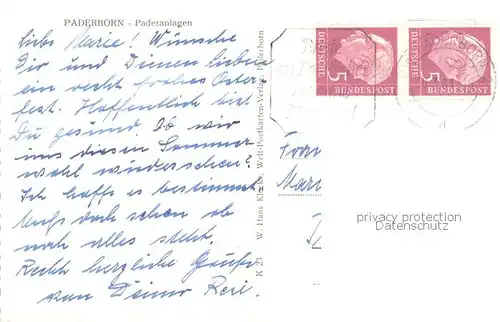 PADERBORN - Paderanlagen
Liebe Marie! Wünsche
Dir und Deinen Lieben
ein recht frohes Oster
fest. Hoffentlich bist
Du gesund. Ob wir
uns diesen Sommer
wohl wiedersehen?
Ich hoffe es bestimmt
doch schon ob
noch alles steht.
Recht herzliche Grüße
von Deiner Resi.
K 23 W. Hans Welt-Postkarten-Verlag Paderborn
DEUTSCHE
5
BUNDESPOST
DEUTSCHE
5
BUNDESPOST
Frau
privacy protection
Datenschutz